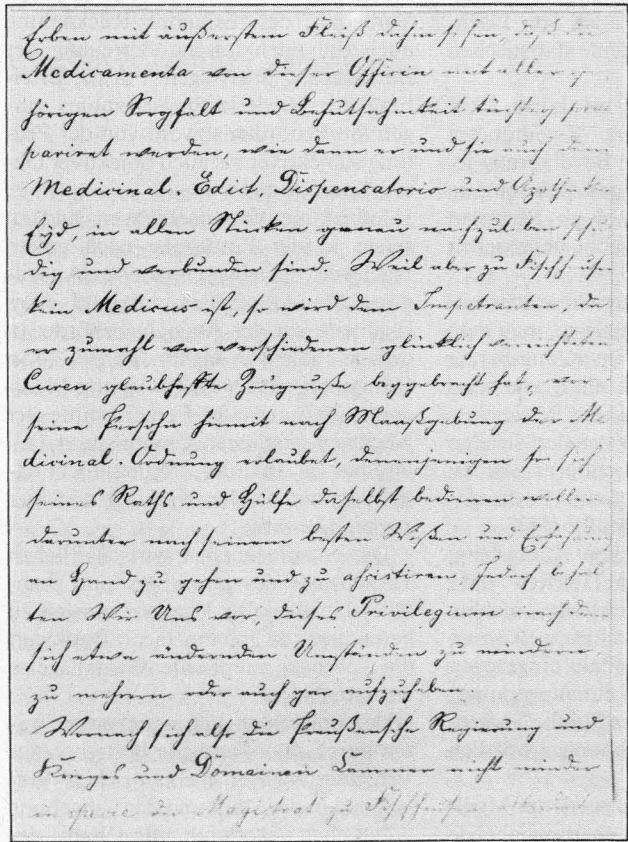 Erben mit außerstem Fleiß dahin sehen, daß die
Medicamenta von dieser Officin mit aller ge-
hörigen Sorgfalt und Behutsahmkeit tüchtig prae-
pariret werden, wie dann er und sie auch dem
Medicinal-Edict, Dispensatorio und Apotheker
Eyd, in allen Stücken genau nachzuleben schul-
dig und verbunden sind. Weil aber zu Fischhausen
kein Medicus ist, so wird dem Impetranten, da
er zumahl von verschiedenen glücklich verrichteten
Curen glaubhaffte Zeugnuße beygebracht hat, vor
seine Persohn hiemit nach Maaßgebung der Me-
dicinal-Ordnung erlaubet, denenjenigen so sich
seines Raths und Hülfe daselbst bedienen wollen
darunter nach seinem besten Wißen und Erfahrung
an Hand zu gehen und zu assistiren, Jedoch behal-
ten Wir Uns vor, dieses Privilegium nach denen
sich etwa ändernden Umständen zu mindern,
zu mehren oder auch gar aufzuheben
Wornach sich also die Preußensche Regierung und
Krieges und Domainen Cammer nicht minder
der Magistrat zu Fischhausen